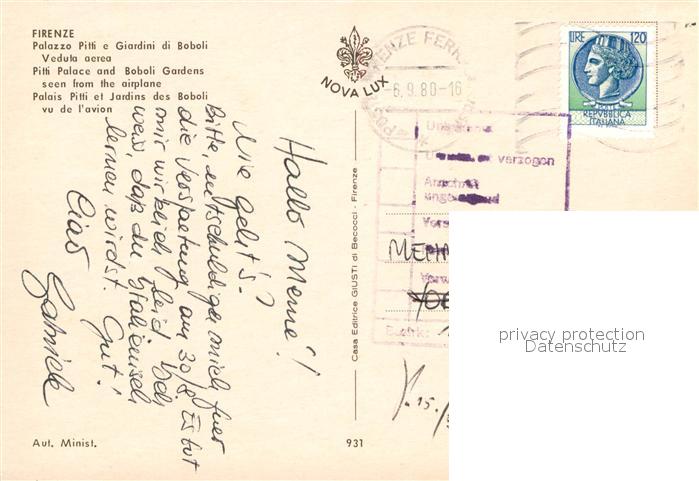 FIRENZE
Palazzo Pitti e Giardini di Boboli
Veduta aerea
Pitti Palace and Boboli Gardens
seen from the airplane
Palais Pitti et Jardins des Boboli
vu de l'avion
NOVA LUX
FIRENZE FERR
-6.9.80-16
LIRE 120
REPVBBLICA
ITALIANA
verzogen
Hallo Meme!
Wie geht's?
Bitte, entschuldige mich fuer
die Verspaetung am 30/8. Es tut
mir wirklich leid. Ich
weiss, daß du Italienisch
lernen wirst. Gut!
Ciao
Gabriele
Casa Editrice GIUSTI di Becocci - Firenze
Bezirk:
15./
privacy protection
Datenschutz
Aut. Minist.
931